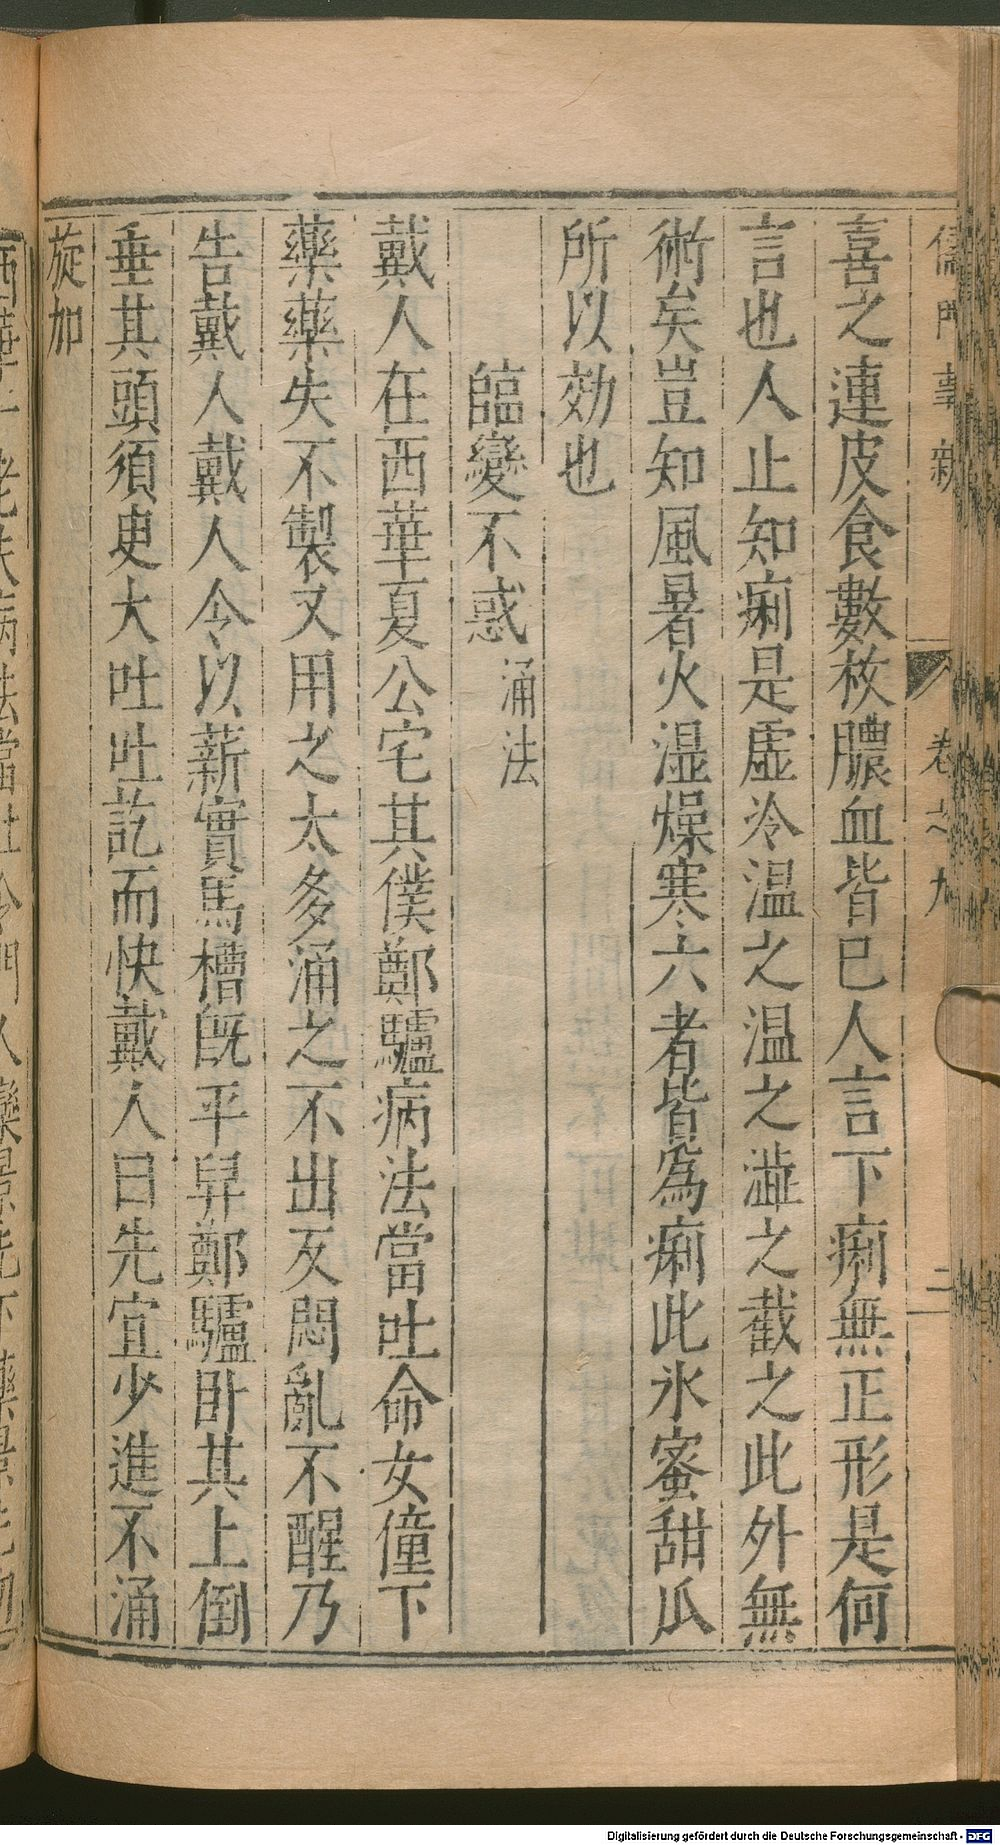 儒門事親 卷之九 二
喜之連皮食數枚膿血皆已人言下痢無正形是何
言也人止知痢是虛冷温之温之澁之截之此外無
術矣豈知風暑火湿燥寒六者皆爲痢此氷蜜甜瓜
所以効也
臨變不惑 涌法
戴人在西華夏公宅其僕鄭驢病法當吐命女僮下
藥藥失不製又用之太多涌之不出反悶亂不醒乃
告戴人戴人令以薪實馬槽旣平舁鄭驢卧其上倒
垂其頭須臾大吐吐訖而快戴人曰先宜少進不涌
旋加
Digitalisierung gefördert durch die Deutsche Forschungsgemeinschaft - DFG